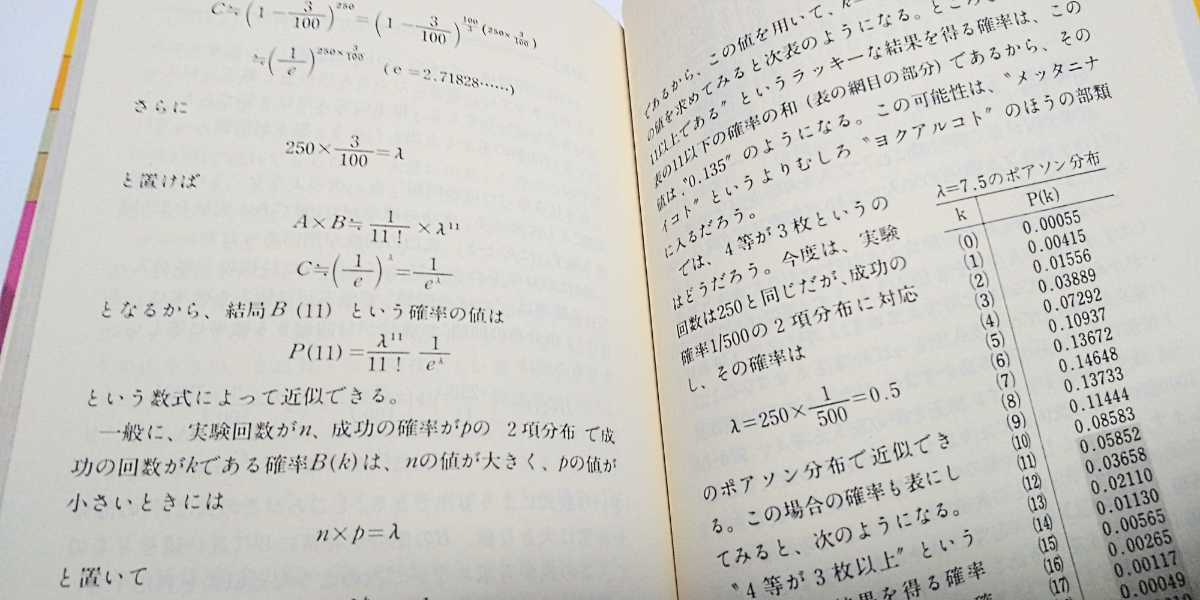 C≒(1－3/100)^250＝(1－3/100)^(100/3 (250×3/100))
≒(1/e)^(250×3/100) (e＝2.71828……)
さらに
250×3/100＝λ
と置けば
A×B≒1/11！×λ^11
C≒(1/e)^λ＝1/e^λ
となるから、結局B（11）という確率の値は
P(11)＝λ^11/11！ 1/e^λ
という数式によって近似できる。
一般に、実験回数がn、成功の確率がpの２項分布で成
功の回数がkである確率B(k)は、nの値が大きく、pの値が
小さいときには
n×p＝λ
と置いて
であるから、この値を用いて、k＝
の値を求めてみると次表のようになる。
11以上である〟というラッキーな結果を得る確率は、この
表の11以下の確率の和（表の網目の部分）であるから、その
値は〝0.135〟のようになる。この可能性は、〝メッタニナ
イコト〟というよりむしろ〝ヨクアルコト〟のほうの部類
に入るだろう。
では、４等が３枚というの
はどうだろう。今度は、実験
回数は250と同じだが、成功の
確率1/500の２項分布に対応
し、その確率は
λ＝250×1/500＝0.5
のポアソン分布で近似でき
る。この場合の確率も表にし
てみると、次のようになる。
〝４等が３枚以上〟という
結果を得る確率
λ＝7.5のポアソン分布
k P(k)
(0) 0.00055
(1) 0.00415
(2) 0.01556
(3) 0.03889
(4) 0.07292
(5) 0.10937
(6) 0.13672
(7) 0.14648
(8) 0.13733
(9) 0.11444
(10) 0.08583
(11) 0.05852
(12) 0.03658
(13) 0.02110
(14) 0.01130
(15) 0.00565
(16) 0.00265
(17) 0.00117
0.00049